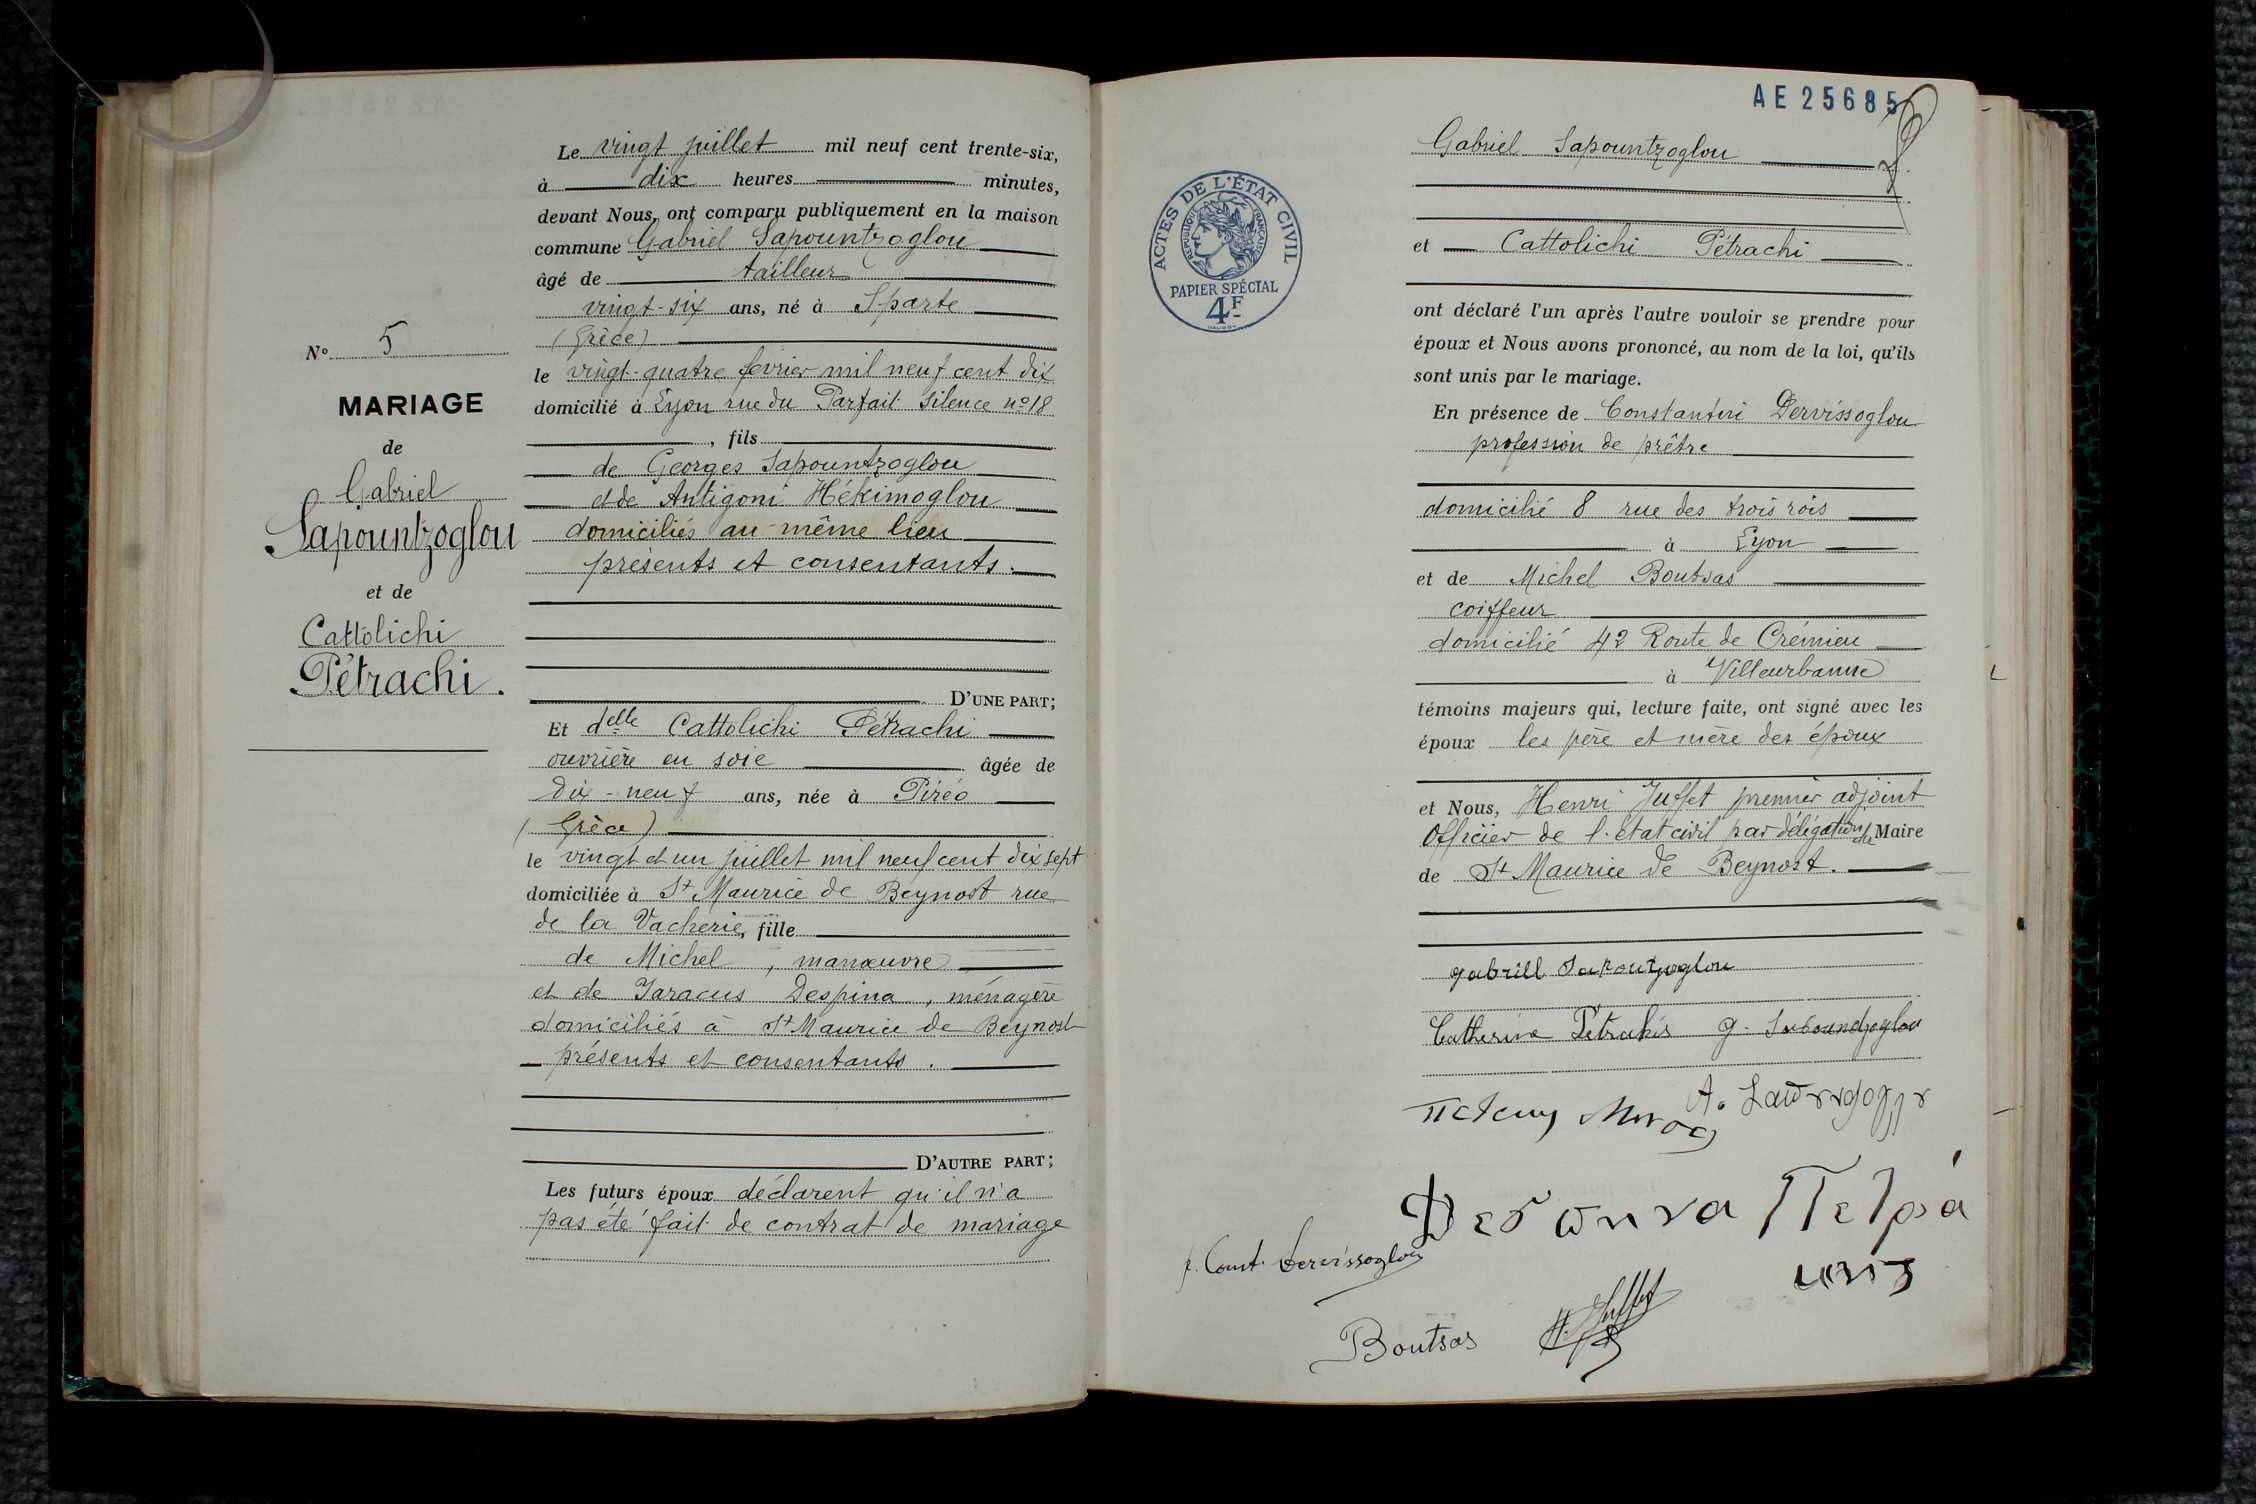 N° 5
MARIAGE
de
Gabriel
Sapountzoglou
et de
Cattolichi
Pétrachi.
Le vingt juillet mil neuf cent trente-six,
à dix heures minutes,
devant Nous, ont comparu publiquement en la maison
commune Gabriel Sapountzoglou
âgé de tailleur
vingt-six ans, né à Sparte
(Grèce)
le vingt-quatre février mil neuf cent dix
domicilié à Lyon rue du Parfait Silence n° 18
, fils
de Georges Sapountzoglou
et de Antigoni Hékimoglou
domiciliés au même lieu
présents et consentants.
D'UNE PART;
Et delle Cattolichi Pétrachi
ouvrière en soie âgée de
dix-neuf ans, née à Piréo
(Grèce)
le vingt et un juillet mil neuf cent dix sept
domiciliée à St Maurice de Beynost rue
de la Vacherie, fille
de Michel, manœuvre
et de Jaracus Despina, ménagère
domiciliés à St Maurice de Beynost
présents et consentants.
D'AUTRE PART;
Les futurs époux déclarent qu'il n'a
pas été fait de contrat de mariage
AE 25685
ACTES DE L'ÉTAT CIVIL
RÉPUBLIQUE FRANÇAISE
PAPIER SPÉCIAL
4F
Gabriel Sapountzoglou
et Cattolichi Pétrachi
ont déclaré l'un après l'autre vouloir se prendre pour
époux et Nous avons prononcé, au nom de la loi, qu'ils
sont unis par le mariage.
En présence de Constantin Dervissoglou
profession de prêtre
domicilié 8 rue des trois rois
à Lyon
et de Michel Boutsas
coiffeur
domicilié 42 Route de Crémieu
à Villeurbanne
témoins majeurs qui, lecture faite, ont signé avec les
époux les père et mère des époux
et Nous, Henri Juffet premier adjoint
Officier de l'état civil par délégation du Maire
de St Maurice de Beynost.
gabriell Sapountzoglou
Catherine Pétrakis g. Saboundzoglou
Δεσπηνα Πετρά
κης
p. Const. Dervissoglou
Boutsas H. Juffet